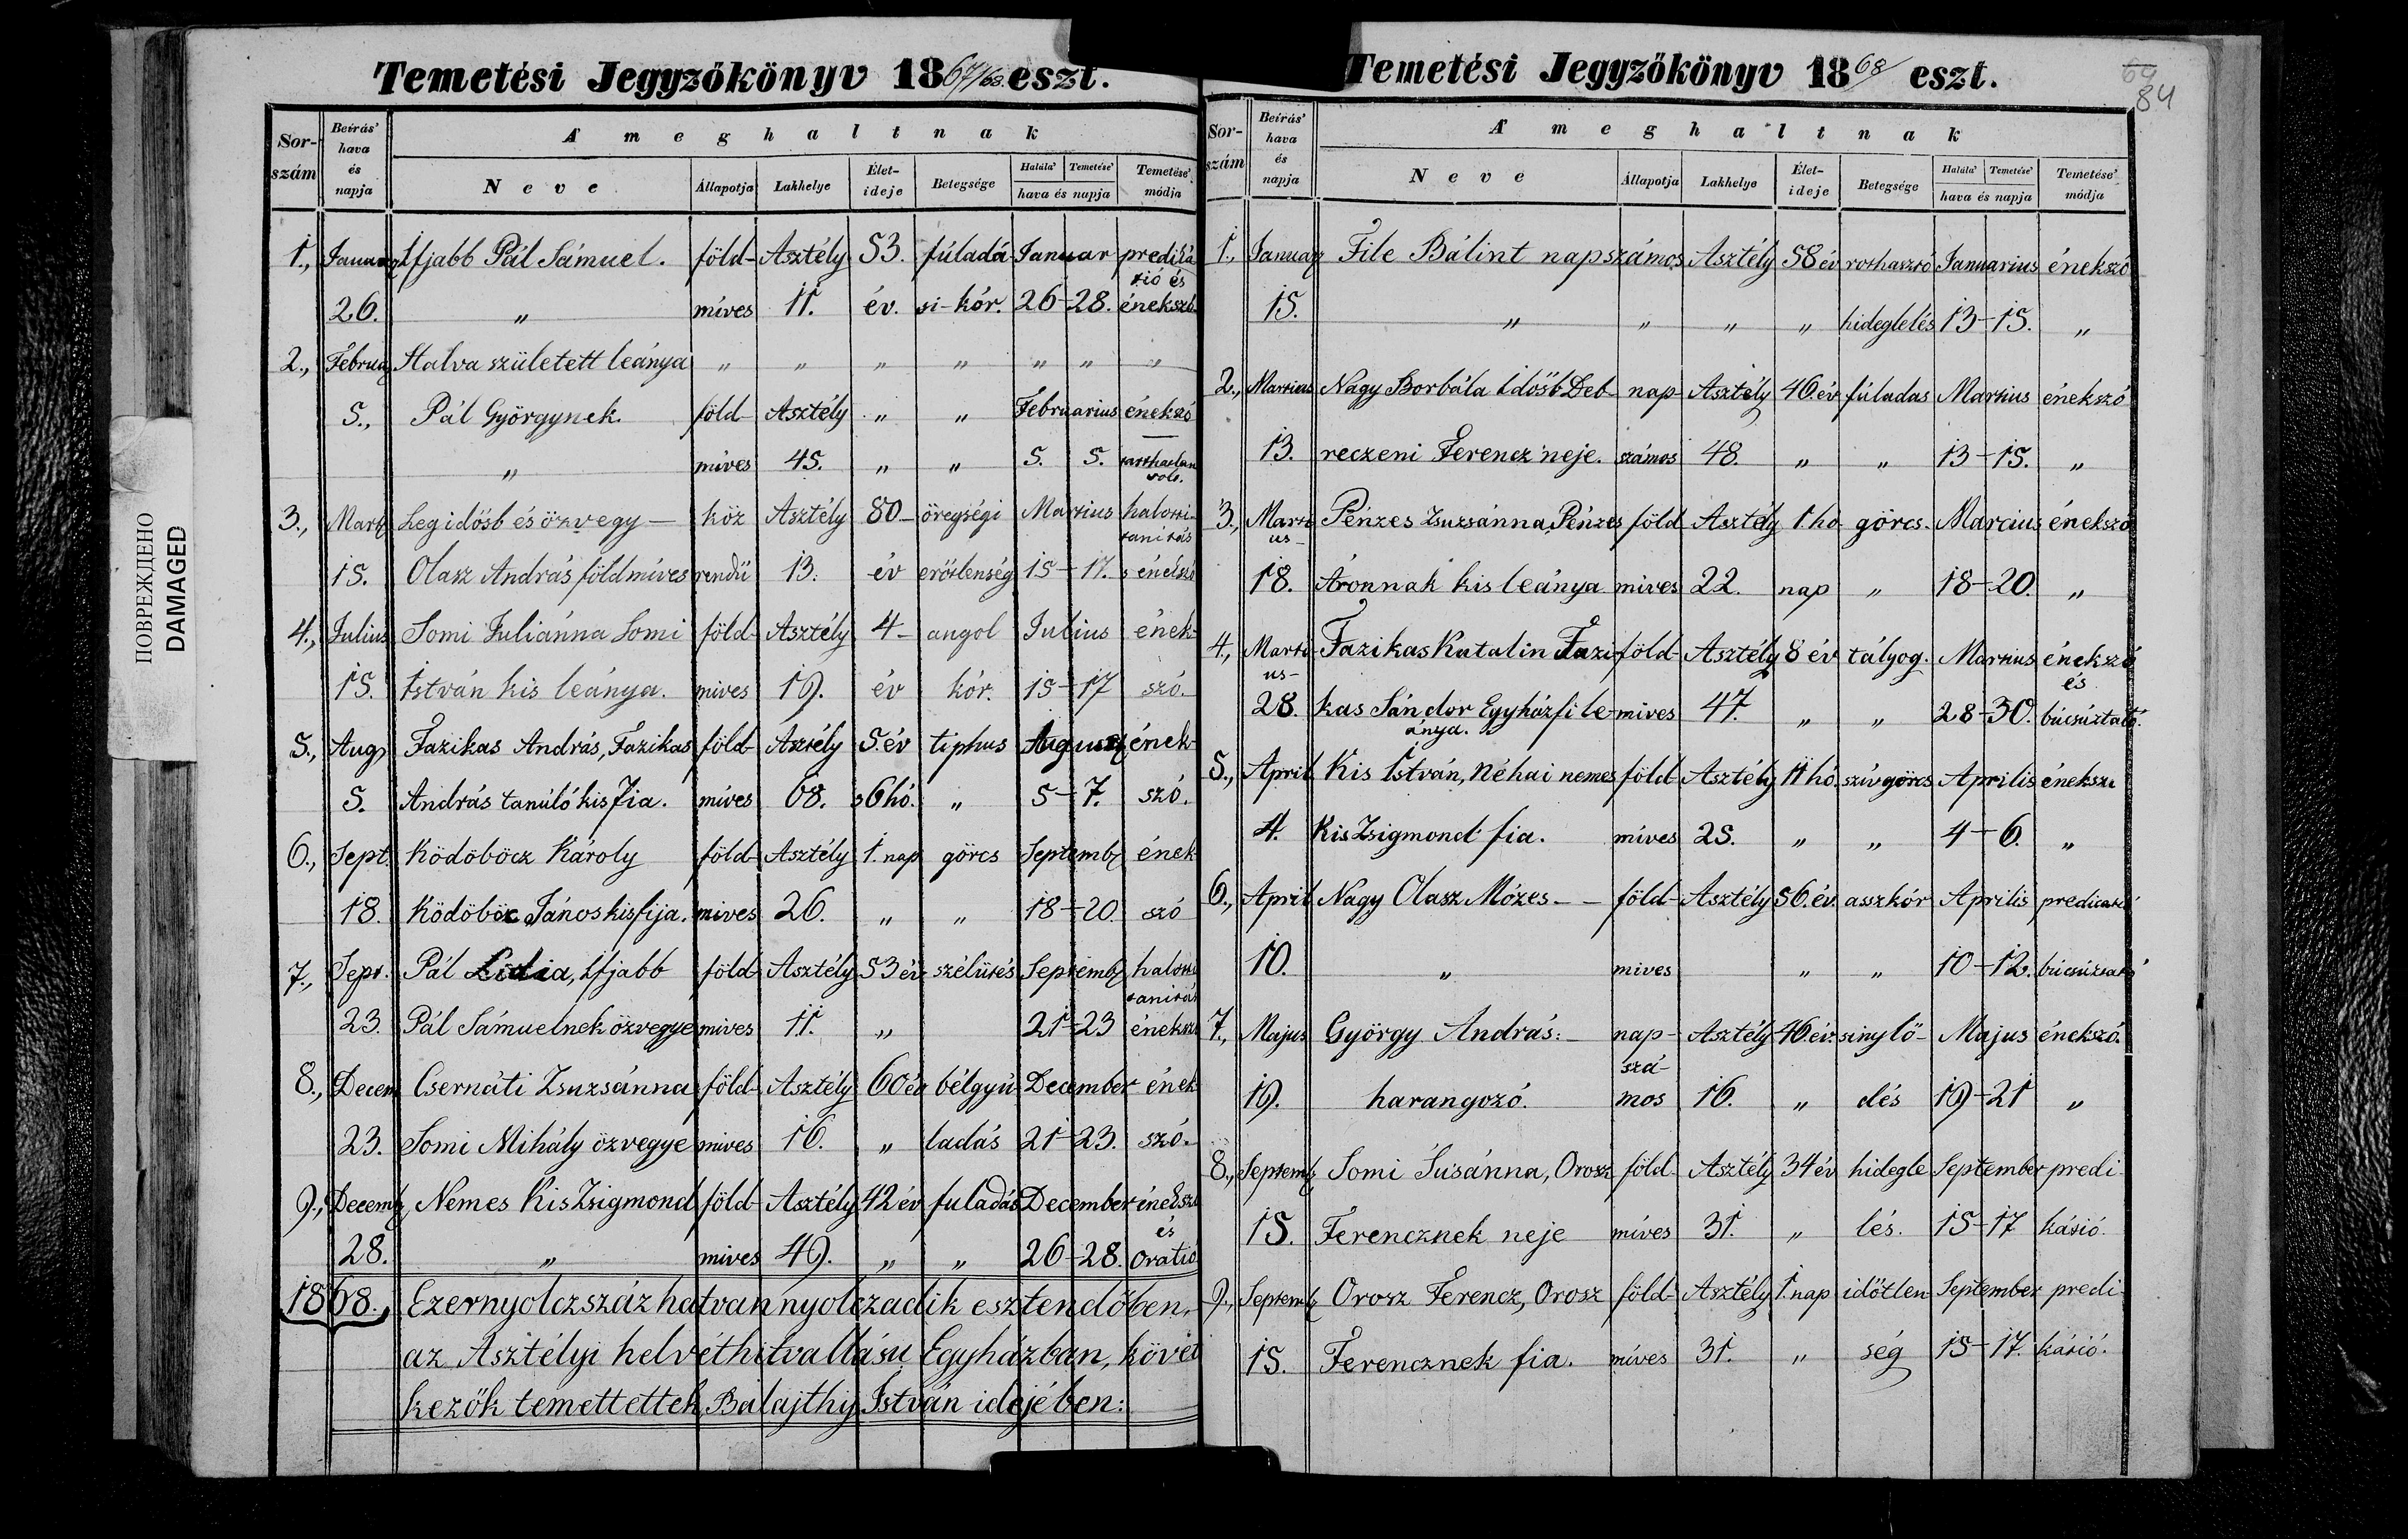 Temetési Jegyzőkönyv 1867/68. eszt.
Sor-szám Beírás' hava és napja A' meghaltnak
Neve Állapotja Lakhelye Élet-ideje Betegsége Halála' Temetése' hava és napja Temetése' módja
1., Ifjabb Pál Sámuel. föld- Asztély 53. fúladá Januar prediká
tió és
26. " míves 11. év. si-kór. 26-28. énekszó
2., Február Halva született leánya " " " " " " "
5., Pál Györgynek. föld- Asztély " " Februarius énekszó
" míves 45. " " 5. 5.
3., Legidősb és özvegy — köz Asztély 80- öregségi Martius halotti-
tanítás
15. Olasz András földmíves rendü 13. év erőtlenség 15-17. s énekszó
4., Julius Somi Juliánna Somi föld- Asztély 4- angol Julius ének-
15. István kis leánya. míves 19. év kór. 15-17 szó.
5., Aug. Fazikas András, Fazikas föld- Asztély 5. év tiphus August ének-
5. András tanúló kis fia. míves 68. s 6 hó. " 5-7. szó.
6., Sept. Ködöböcz Károly föld- Asztély 1. nap görcs Septemb. ének
18. Ködöböcz János kis fija. míves 26. " " 18-20. szó
7., Sept. Pál Lidia, Ifjabb föld Asztély 53 év szélütés Septemb. halotti
tanítás
23. Pál Sámuelnek özvegye míves 11. " 21-23 énekszó
8., Decem Csernáti Zsuzsánna föld- Asztély 60 év bélgyú- December ének
23. Somi Mihály özvegye míves 16. " ladás 21-23. szó.
9., Decemb. Nemes Kis Zsigmond föld- Asztély 42 év fuladás December énekszó
és
28. " míves 49. " " 26-28. oratió
1868. Ezernyolczszáz hatvan nyolczadik esztendőben,
az Asztélyi helvét hitvallásu Egyházban, követ
kezők temettettek, Balajthy István idejében:
ПОВРЕЖДЕНО
DAMAGED
Temetési Jegyzőkönyv 1868 eszt.
64
84
Sor-szám Beírás' hava és napja A' meghaltnak
Neve Állapotja Lakhelye Élet-ideje Betegsége Halála' Temetése' hava és napja Temetése' módja
1., Január File Bálint napszámos Asztély 58 év rothasztó Januarius énekszó
15. " " " " hideglelés 13-15. "
2., Martius Nagy Borbála Idősb Deb- nap- Asztély 46. év fúladas Martius énekszó
13. reczeni Ferencz neje. számos 48. " " 13-15. "
3., Marti Pénzes Zsuzsánna, Pénzes föld Asztély 1 hó görcs. Marcius énekszó
us-
18. Áronnak kis leánya míves 22. nap " 18-20. "
4., Marti- Fazikas Katalin Fazi- föld- Asztély 8 év tályog. Martius énekszó
us- és
28. kas Sándor Egyházfi le- míves 47. " " 28-30. búcsúztató.
ánya.
5., April Kis István, Néhai nemes föld- Asztély 11 hó. szívgörcs Aprilis énekszó
4. Kis Zsigmond fia. míves 25. " " 4-6. "
6., April Nagy Olasz Mózes- - föld- Asztély 56. év aszkór Aprilis
10. " míves " " 10-12.
7., Majus György András: - nap- Asztély 46. év. sinylő- Majus énekszó.
szá-
19. harangozó. mos 16. " dés 19-21 "
8., Septemb. Somi Susánna, Orosz föld- Asztély 34 év hidegle September predi-
15. Ferencznek neje míves 31. " lés. 15-17 kátió.
9., Septemb. Orosz Ferencz, Orosz föld- Asztély 1. nap időtlen September predi-
15. Ferencznek fia. míves 31. " ség 15-17. kátió.